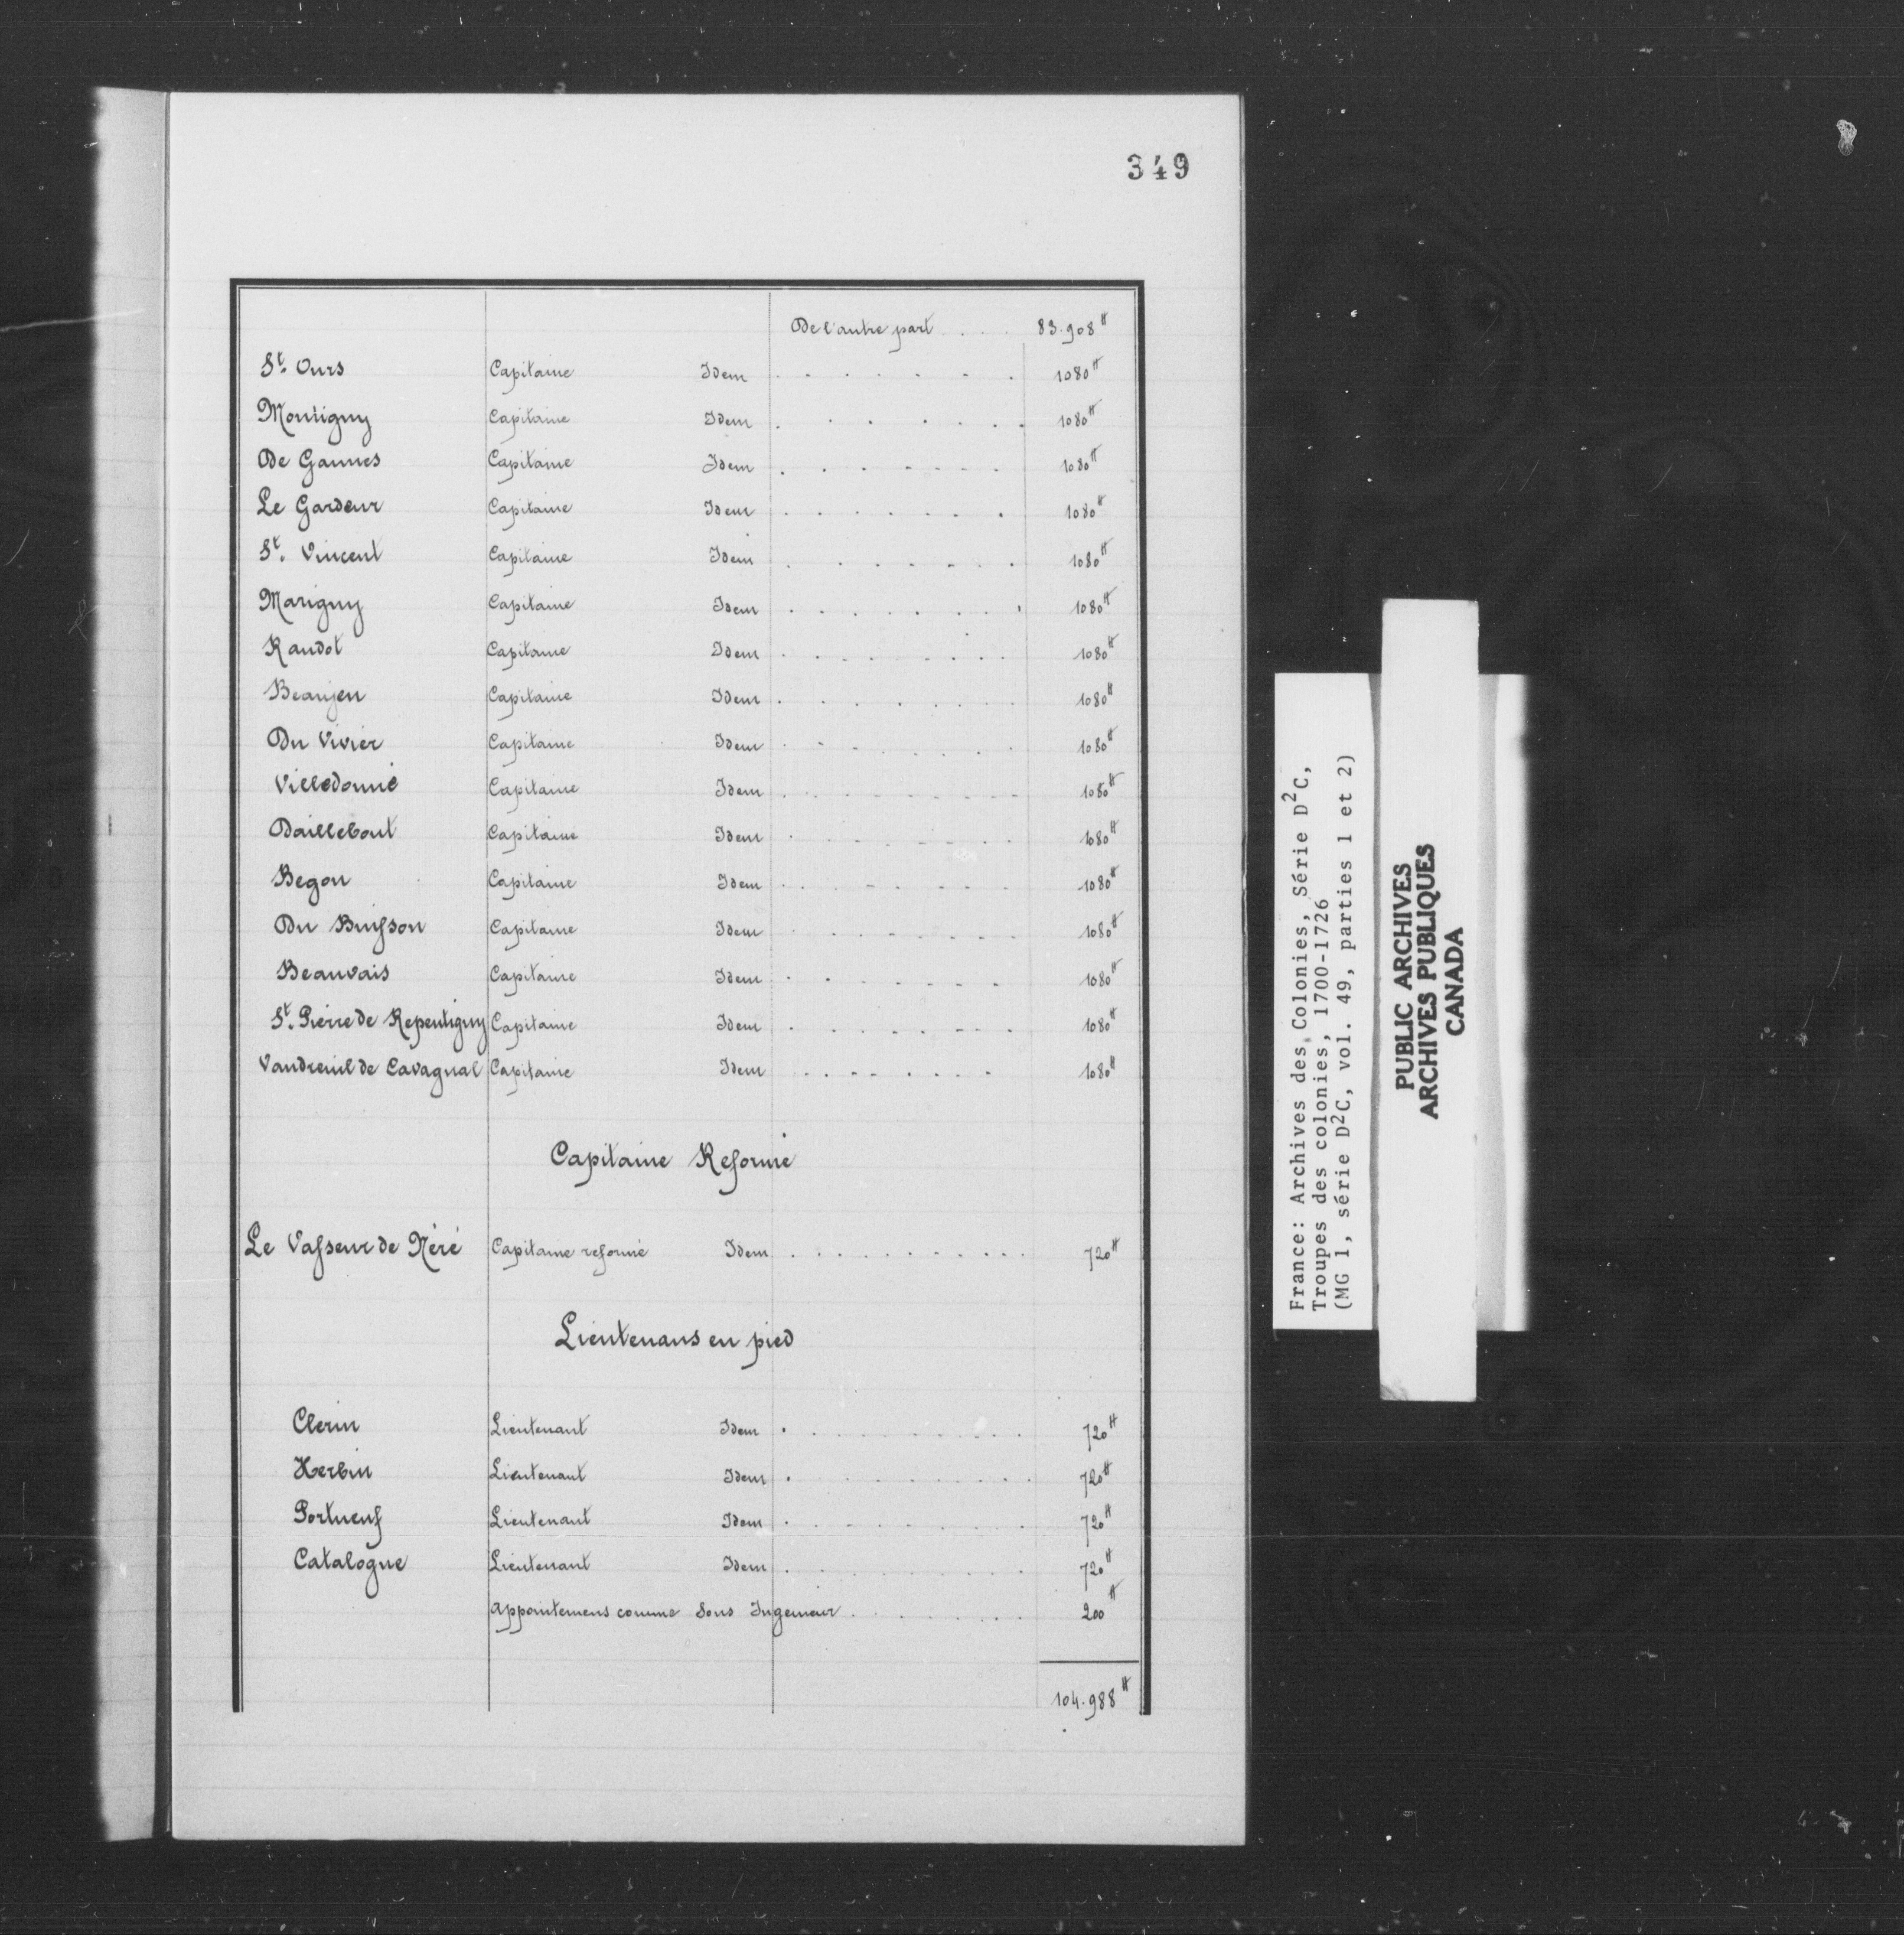 349
De l'autre part . . . 83.908 ᵗᵗ
Sᵗ. Ours Capitaine Idem . . . . . . . 1080 ᵗᵗ
Montigny Capitaine Idem . . . . . . . 1080 ᵗᵗ
De Gannes Capitaine Idem . . . . . . . 1080 ᵗᵗ
Le Gardeur Capitaine Idem . . . . . . . 1080 ᵗᵗ
Sᵗ. Vincent Capitaine Idem . . . . . . . 1080 ᵗᵗ
Marigny Capitaine Idem . . . . . . . 1080 ᵗᵗ
Raudot Capitaine Idem . . . . . . . 1080 ᵗᵗ
Beaujeu Capitaine Idem . . . . . . . 1080 ᵗᵗ
Du Vivier Capitaine Idem . . . . . . . 1080 ᵗᵗ
Villedonné Capitaine Idem . . . . . . . 1080 ᵗᵗ
Daillebout Capitaine Idem . . . . . . . 1080 ᵗᵗ
Begon Capitaine Idem . . . . . . . 1080 ᵗᵗ
Du Buisson Capitaine Idem . . . . . . . 1080 ᵗᵗ
Beauvais Capitaine Idem . . . . . . . 1080 ᵗᵗ
Sᵗ. Pierre de Repentigny Capitaine Idem . . . . . . . 1080 ᵗᵗ
Vaudreuil de Cavagnal Capitaine Idem . . . . . . . 1080 ᵗᵗ
Capitaine Reformé
Le Vasseur de Néré Capitaine reformé Idem . . . . . . . 720 ᵗᵗ
Lieutenans en pied
Clerin Lieutenant Idem . . . . . . . 720 ᵗᵗ
Herbin Lieutenant Idem . . . . . . . 720 ᵗᵗ
Portneuf Lieutenant Idem . . . . . . . 720 ᵗᵗ
Catalogne Lieutenant Idem . . . . . . . 720 ᵗᵗ
appointemens comme Sous Ingenieur . . . . . . . 200 ᵗᵗ
104.988 ᵗᵗ
France: Archives des Colonies, Série D²C,
Troupes des colonies, 1700-1726
(MG 1, série D²C, vol. 49, parties 1 et 2)
PUBLIC ARCHIVES
ARCHIVES PUBLIQUES
CANADA